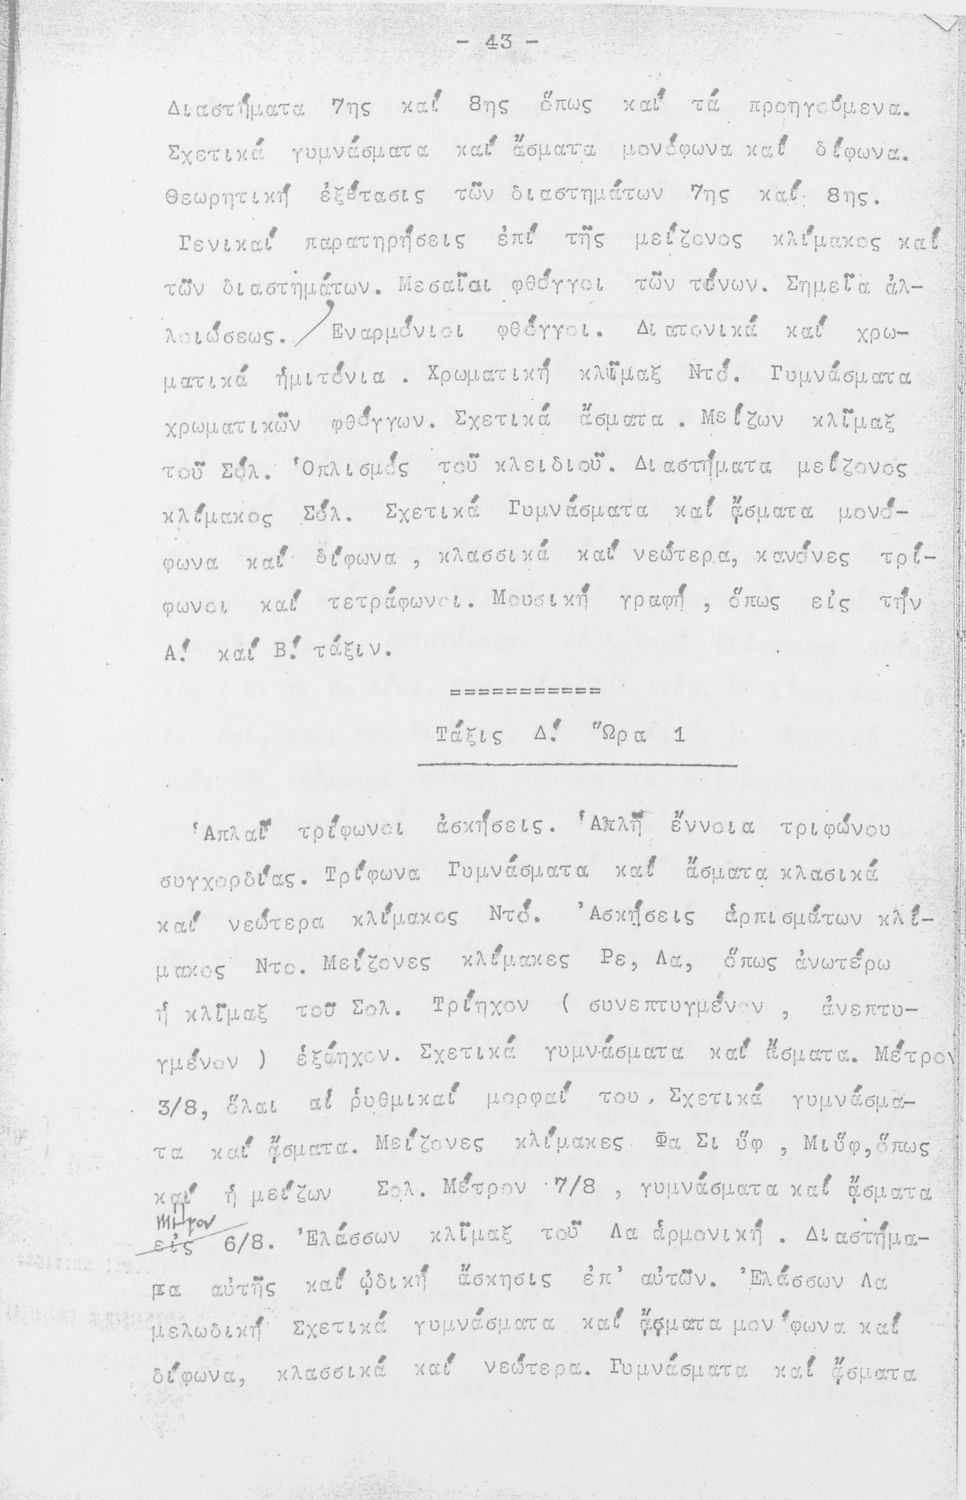 - 43 -
Διαστήματα 7ης καί 8ης ὅπως καί τά προηγούμενα.
Σχετικά γυμνάσματα καί ἄσματα μονόφωνα καί δίφωνα.
Θεωρητική ἐξέτασις τῶν διαστημάτων 7ης καί 8ης.
Γενικαί παρατηρήσεις ἐπί τῆς μείζονος κλίμακος καί
τῶν διαστημάτων. Μεσαῖοι φθόγγοι τῶν τόνων. Σημεῖα ἀλ-
λοιώσεως. / Ἐναρμόνιοι φθόγγοι. Διατονικά καί χρω-
ματικά ἡμιτόνια . Χρωματική κλῖμαξ Ντό. Γυμνάσματα
χρωματικῶν φθόγγων. Σχετικά ἄσματα . Μείζων κλῖμαξ
τοῦ Σόλ. Ὁπλισμός τοῦ κλειδιοῦ. Διαστήματα μείζονος
κλίμακος Σόλ. Σχετικά Γυμνάσματα καί ᾄσματα μονό-
φωνα καί δίφωνα , κλασσικά καί νεώτερα, κανόνες τρί-
φωνοι καί τετράφωνοι. Μουσική γραφή , ὅπως εἰς τήν
Α! καί Β! τάξιν.
===========
Τάξις Δ! Ὥρα 1
Ἁπλαῖ τρίφωνοι ἀσκήσεις. Ἁπλῆ ἔννοια τριφώνου
συγχορδίας. Τρίφωνα Γυμνάσματα καί ἄσματα κλασικά
καί νεώτερα κλίμακος Ντό. Ἀσκήσεις ἁρπισμάτων κλί-
μακος Ντο. Μείζονες κλίμακες Ρε, Λα, ὅπως ἀνωτέρω
ἡ κλῖμαξ τοῦ Σολ. Τρίηχον ( συνεπτυγμένον , ἀνεπτυ-
γμένον ) ἑξάηχον. Σχετικά γυμνάσματα καί ἄσματα. Μέτρον
3/8, ὅλαι αἱ ῥυθμικαί μορφαί του. Σχετικά γυμνάσμα-
τα καί ᾄσματα. Μείζονες κλίμακες Φα Σι ὕφ , Μιὕφ,ὅπως
καί ἡ μείζων Σολ. Μέτρον 7/8 , γυμνάσματα καί ᾄσματα
μέτρον
εἰς 6/8. Ἐλάσσων κλῖμαξ τοῦ Λα ἁρμονική . Διαστήμα-
τα αὐτῆς καί ᾠδική ἄσκησις ἐπ' αὐτῶν. Ἐλάσσων Λα
μελωδική Σχετικά γυμνάσματα καί ᾄσματα μονόφωνα καί
δίφωνα, κλασσικά καί νεώτερα. Γυμνάσματα καί ᾄσματα